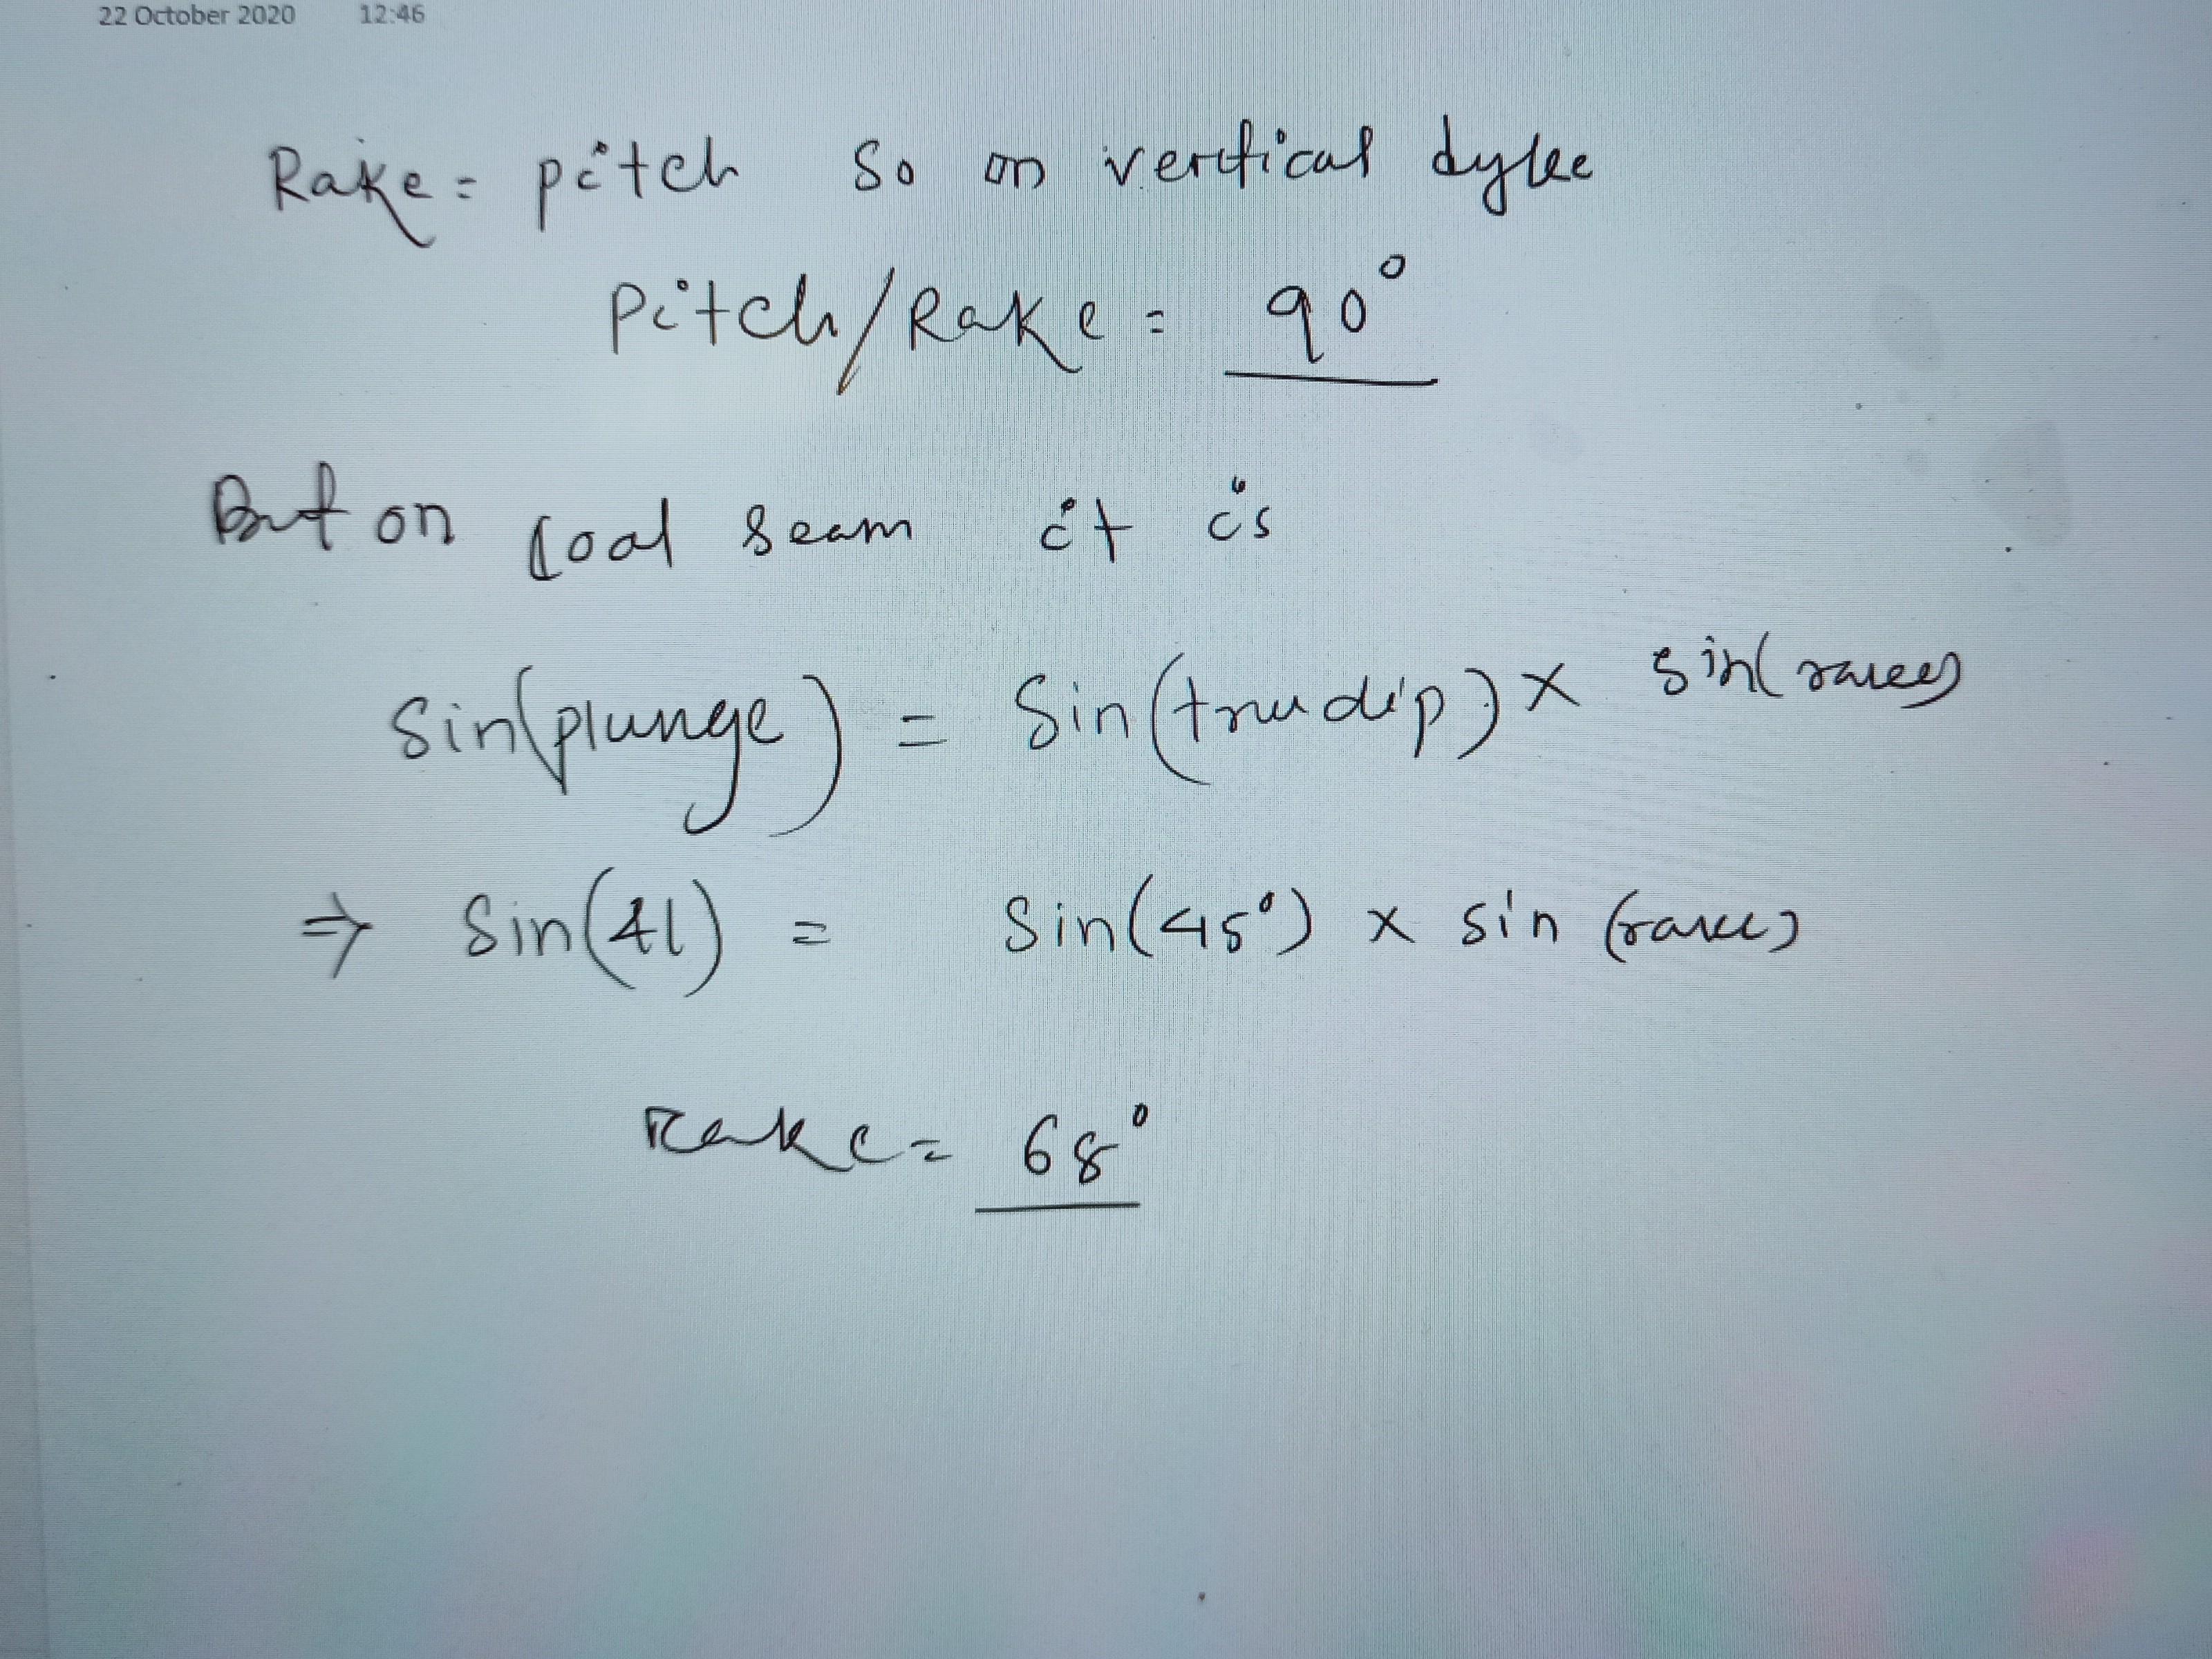 22 October 2020 12:46
Rake = pitch so on vertical dyke
Pitch/Rake = 90°
But on coal seam it is
Sin(plunge) = Sin(true dip) x sin(rake)
⇒ Sin(41) = Sin(45°) x sin (rake)
Rake = 68°